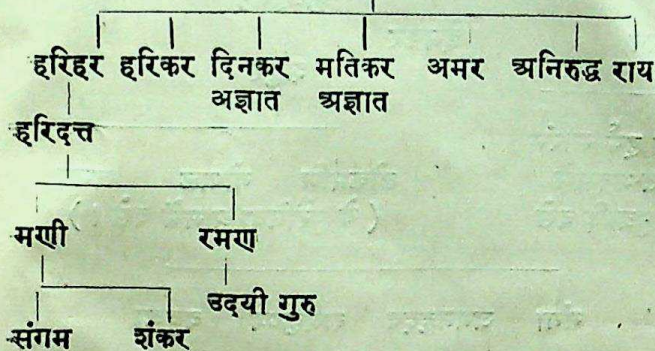 हरिहर हरिकर दिनकर मतिकर अमर अनिरुद्ध राय
अज्ञात अज्ञात
हरिदत्त
मणी रमण
उदयी गुरु
संगम शंकर